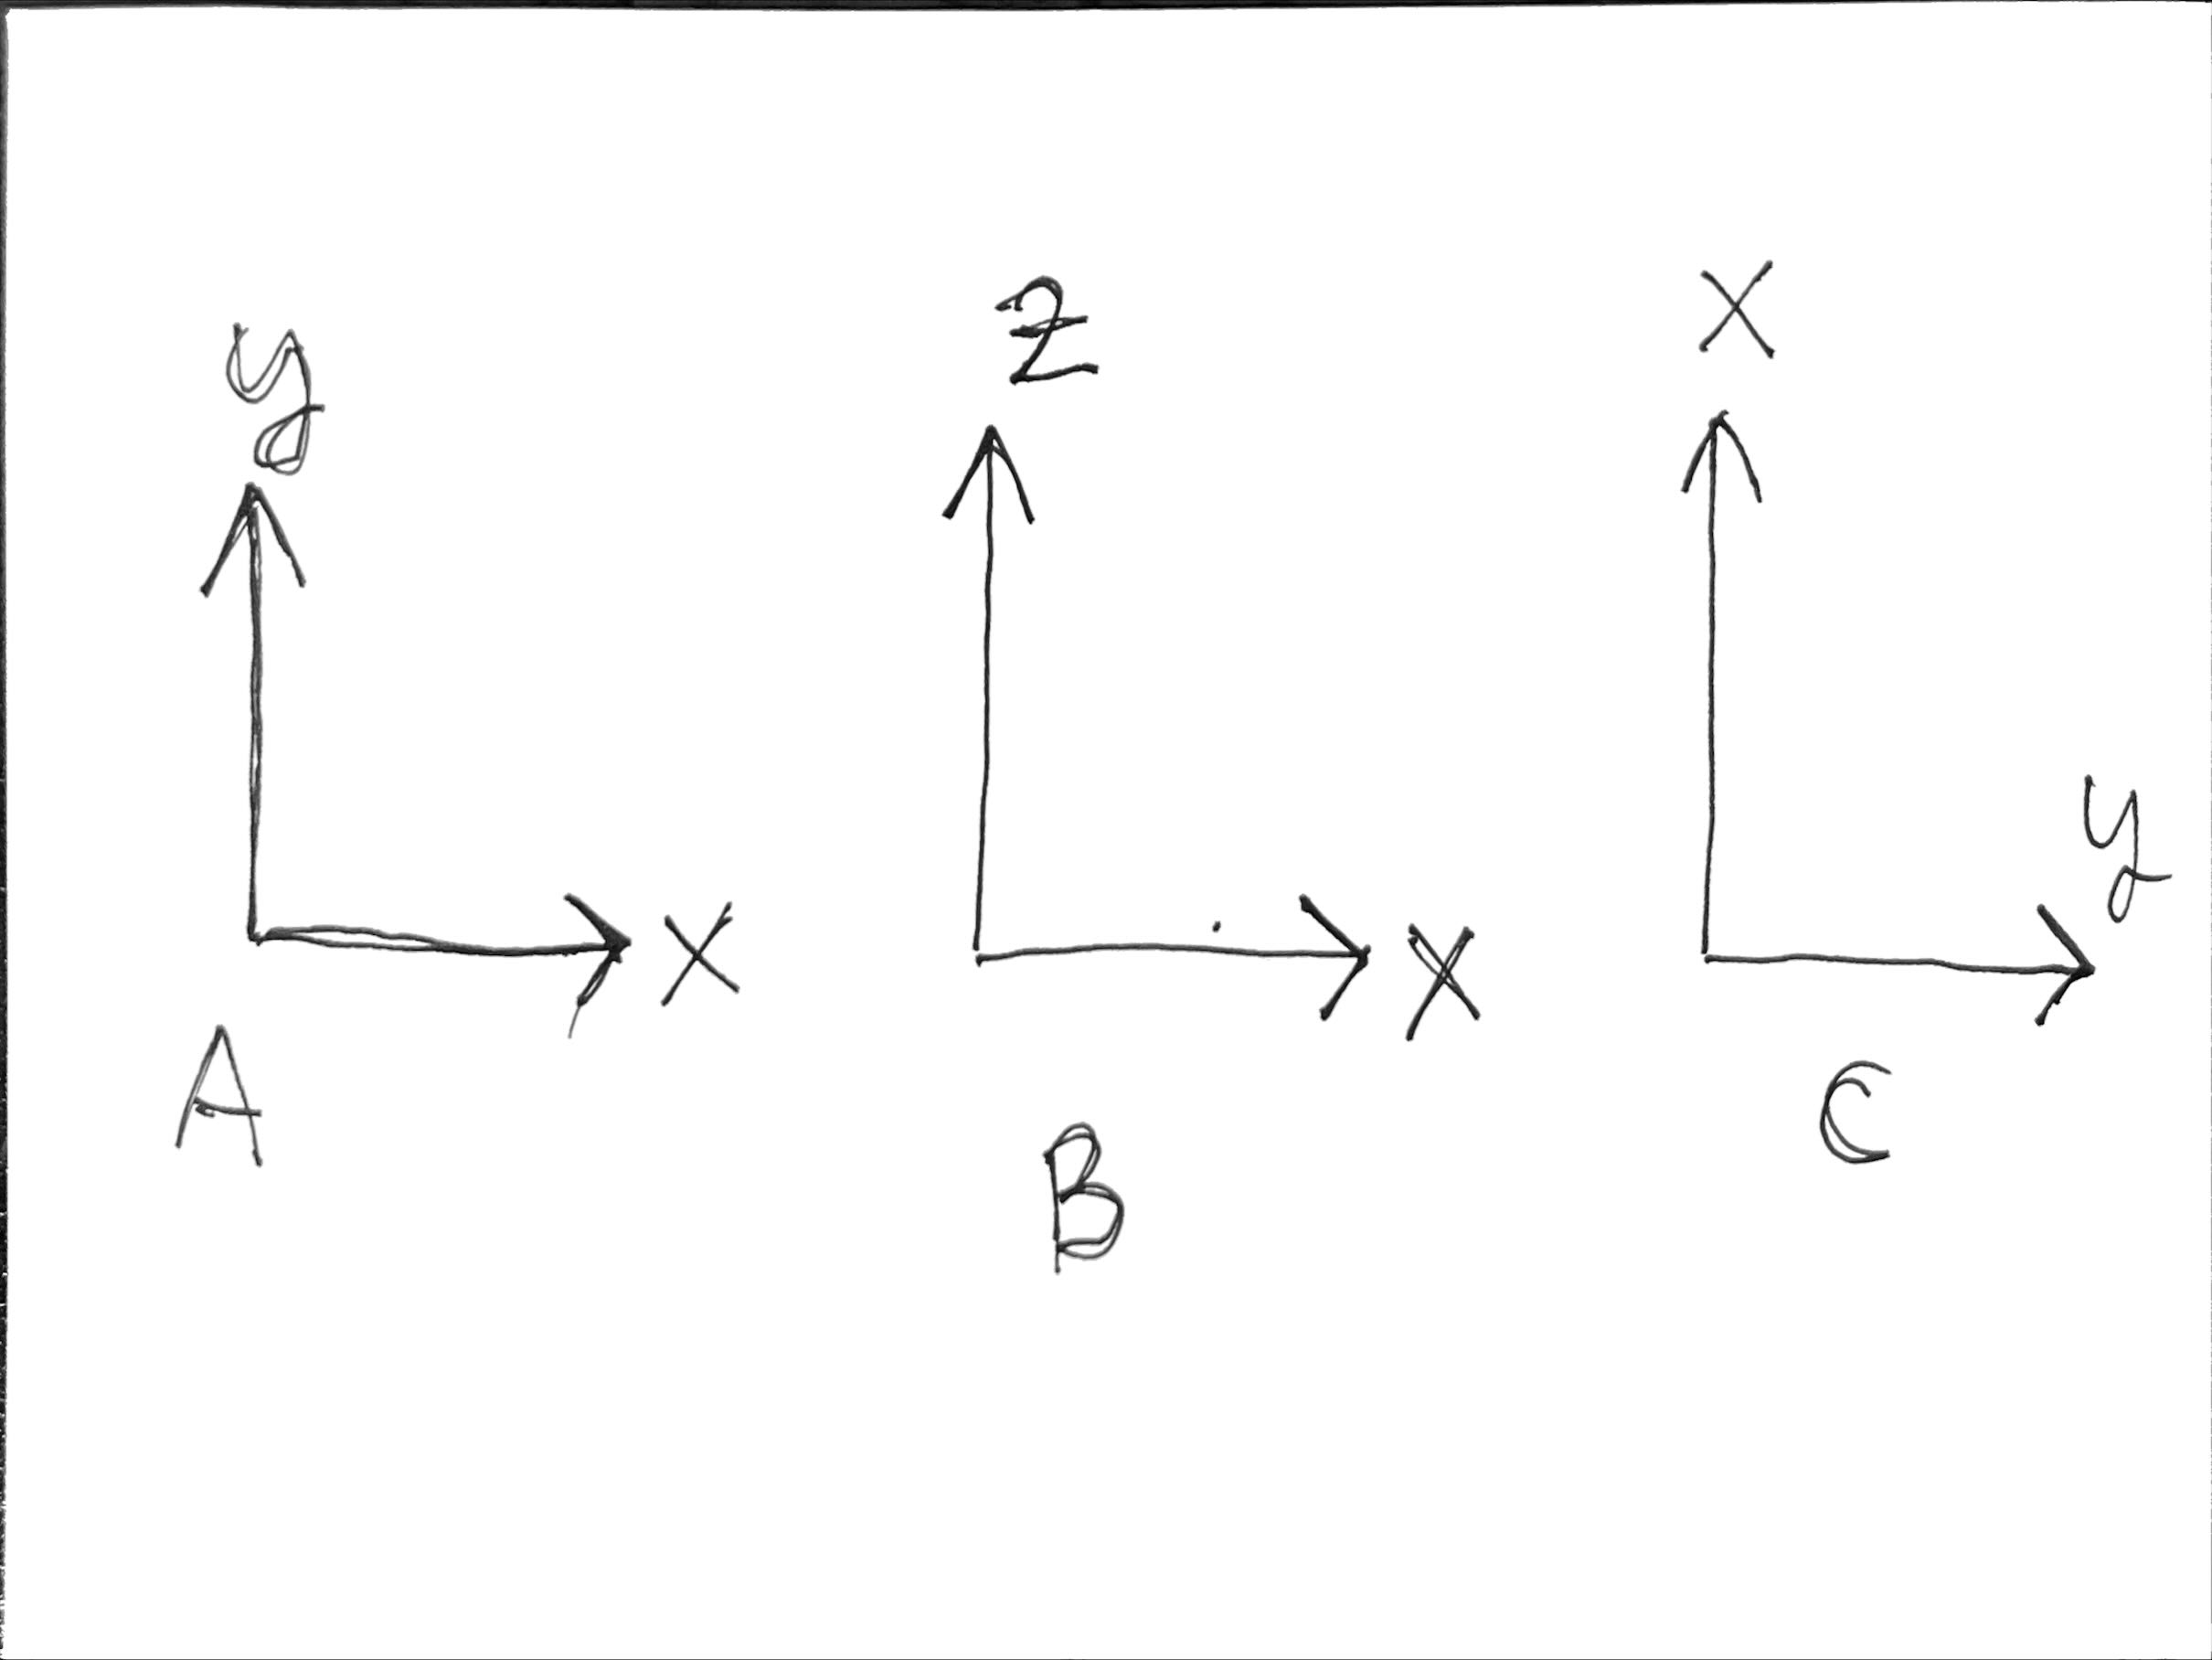 y
x
A
z
x
B
x
y
C